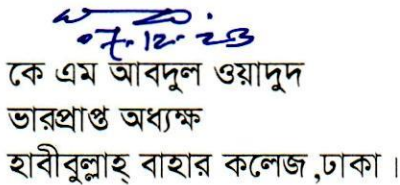 07.12.23
কে এম আবদুল ওয়াদুদ
ভারপ্রাপ্ত অধ্যক্ষ
হাবীবুল্লাহ্ বাহার কলেজ ,ঢাকা।